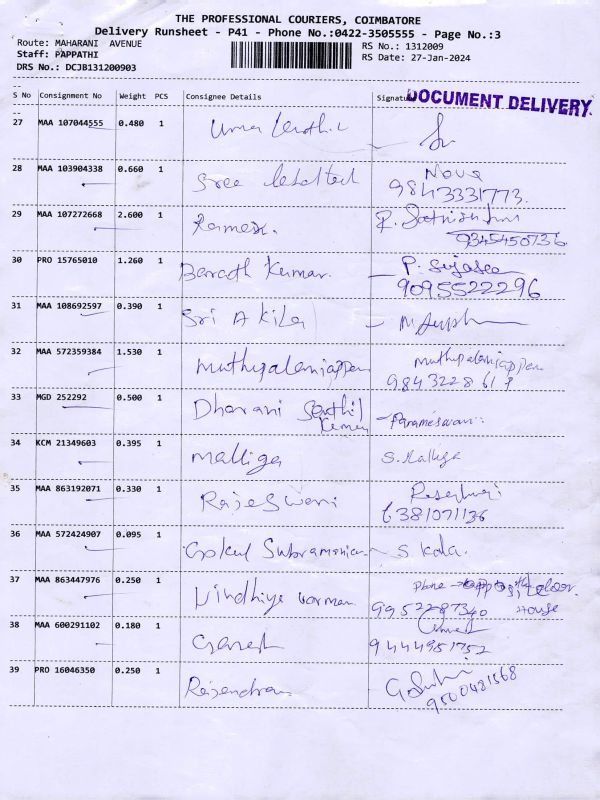 THE PROFESSIONAL COURIERS, COIMBATORE
Delivery Runsheet - P41 - Phone No.:0422-3505555 - Page No.:3
Route: MAHARANI AVENUE
RS No.: 1312009
Staff: PAPPATHI
RS Date: 27-Jan-2024
DRS No.: DCJB131200903
DOCUMENT DELIVERY
--
S No Consignment No Weight PCS Consignee Details Signature
--
27 MAA 107044555 0.480 1 Uma
28 MAA 103904338 0.660 1 Sree
9843331773
29 MAA 107272668 2.600 1 Ramesh
9345450736
30 PRO 15765010 1.260 1 Barath Kumar P. Sujatha
9095522296
31 MAA 108692597 0.390 1 Sri Akila
32 MAA 572359384 1.530 1 Muthupalaniappan Muthupalaniappan
33 MGD 252292 0.500 1 Dharani Senthil Kumar Parameswari
34 KCM 21349603 0.395 1 Malliga S. Malliga
35 MAA 863192071 0.330 1 Rajeswari
6381071136
36 MAA 572424907 0.095 1 Gokul Subramanian S Kala
37 MAA 863447976 0.250 1 Vindhiya varman Phone opposite door
9952287340 House
38 MAA 600291102 0.180 1 Ganesh
9444951752
39 PRO 16046350 0.250 1 Rajendran
9500481568